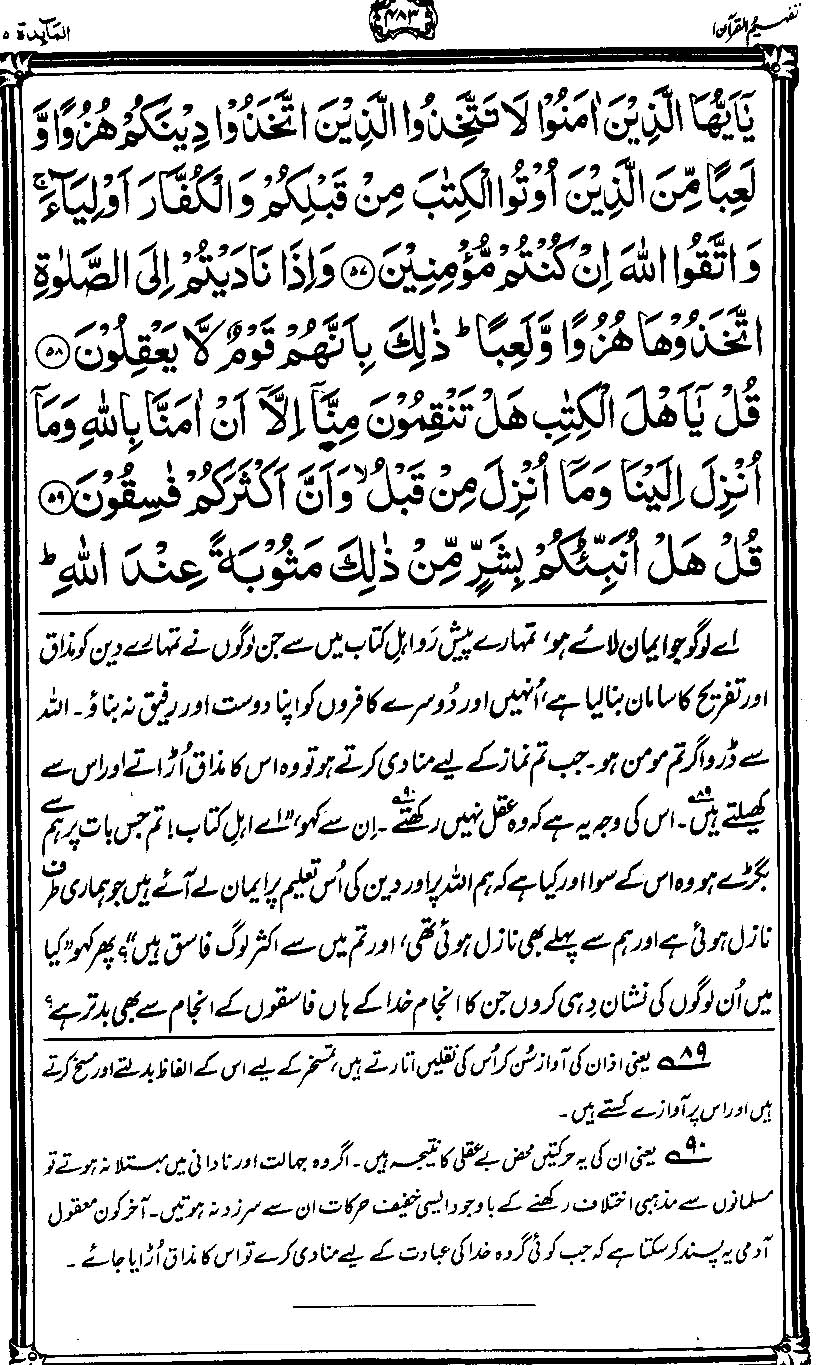 تفہیم القرآن ۱
۴۸۳
المآىِٕدة ۵
يٰۤاَيُّهَا الَّذِيْنَ اٰمَنُوْا لَا تَتَّخِذُوا الَّذِيْنَ اتَّخَذُوْا دِيْنَكُمْ هُزُوًا وَّ
لَعِبًا مِّنَ الَّذِيْنَ اُوْتُوا الْكِتٰبَ مِنْ قَبْلِكُمْ وَالْكُفَّارَ اَوْلِيَآءَ ۚ
وَاتَّقُوا اللّٰهَ اِنْ كُنْتُمْ مُّؤْمِنِيْنَ ﴿۵۷﴾ وَاِذَا نَادَيْتُمْ اِلَى الصَّلٰوةِ
اتَّخَذُوْهَا هُزُوًا وَّلَعِبًا ؕ ذٰلِكَ بِاَنَّهُمْ قَوْمٌ لَّا يَعْقِلُوْنَ ﴿۵۸﴾
قُلْ يٰۤاَهْلَ الْكِتٰبِ هَلْ تَنْقِمُوْنَ مِنَّاۤ اِلَّاۤ اَنْ اٰمَنَّا بِاللّٰهِ وَمَاۤ
اُنْزِلَ اِلَيْنَا وَمَاۤ اُنْزِلَ مِنْ قَبْلُ ۙ وَاَنَّ اَكْثَرَكُمْ فٰسِقُوْنَ ﴿۵۹﴾
قُلْ هَلْ اُنَبِّئُكُمْ بِشَرٍّ مِّنْ ذٰلِكَ مَثُوْبَةً عِنْدَ اللّٰهِ ؕ
اے لوگو جو ایمان لائے ہو، تمہارے پیش رَو اہلِ کتاب میں سے جن لوگوں نے تمہارے دین کو مذاق
اور تفریح کا سامان بنا لیا ہے، اُنہیں اور دُوسرے کافروں کو اپنا دوست اور رفیق نہ بناؤ۔ اللہ
سے ڈرو اگر تم مومن ہو۔ جب تم نماز کے لیے منادی کرتے ہو تو وہ اس کا مذاق اُڑاتے اور اس سے
کھیلتے ہیں۸۹۔ اس کی وجہ یہ ہے کہ وہ عقل نہیں رکھتے۹۰۔ اِن سے کہو، ”اے اہلِ کتاب! تم جس بات پر ہم سے
بگڑے ہو وہ اس کے سوا اور کیا ہے کہ ہم اللہ پر اور دین کی اُس تعلیم پر ایمان لے آئے ہیں جو ہماری طرف
نازل ہوئی ہے اور ہم سے پہلے بھی نازل ہوئی تھی، اور تم میں سے اکثر لوگ فاسق ہیں“؟ پھر کہو ”کیا
میں اُن لوگوں کی نشان دہی کروں جن کا انجام خدا کے ہاں فاسقوں کے انجام سے بھی بدتر ہے؟
۸۹؎ یعنی اذان کی آواز سُن کر اُس کی نقلیں اتارتے ہیں، تمسخر کے لیے اس کے الفاظ بدلتے اور مسخ کرتے
ہیں اور اس پر آوازے کستے ہیں۔
۹۰؎ یعنی ان کی یہ حرکتیں محض بے عقلی کا نتیجہ ہیں۔ اگر وہ جہالت اور نادانی میں مبتلا نہ ہوتے تو
مسلمانوں سے مذہبی اختلاف رکھنے کے باوجود ایسی خفیف حرکات ان سے سرزد نہ ہوتیں۔ آخر کون معقول
آدمی یہ پسند کر سکتا ہے کہ جب کوئی گروہ خدا کی عبادت کے لیے منادی کرے تو اس کا مذاق اُڑایا جائے۔